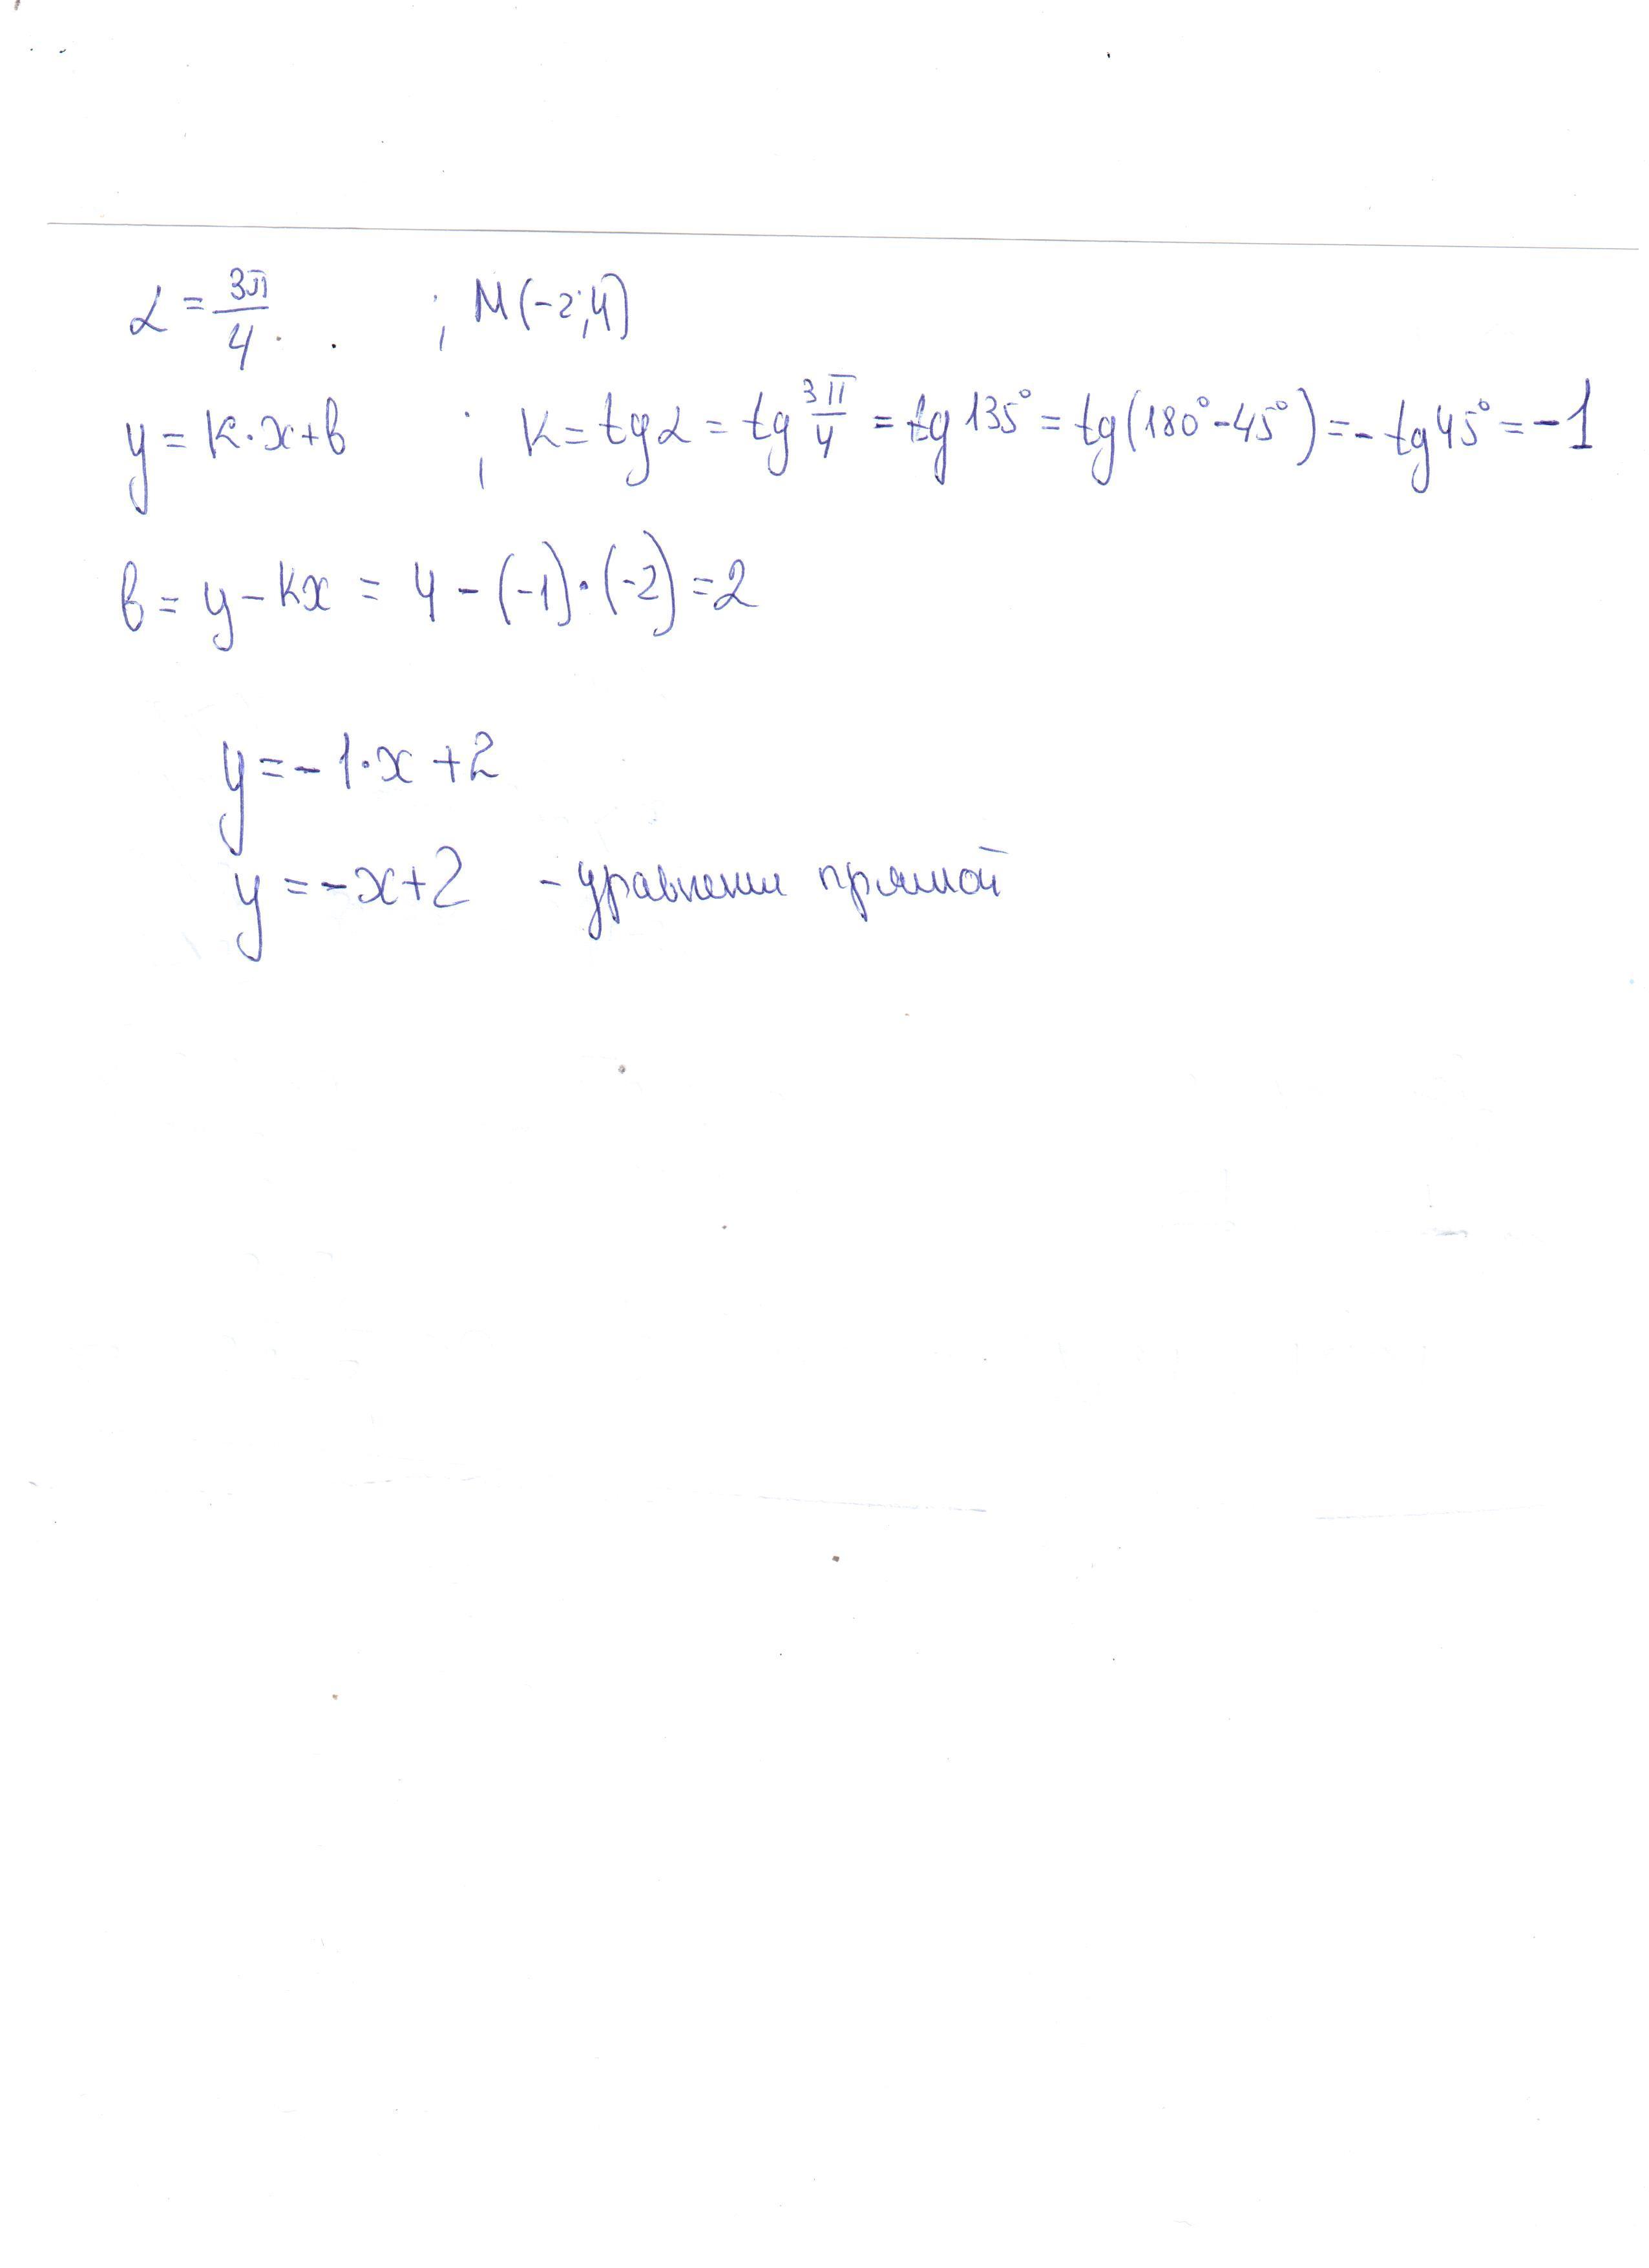 α = 3π/4 ; M(-2;4)
y = k·x+b ; k = tgα = tg 3π/4 = tg 135° = tg(180°-45°) = - tg 45° = -1
b = y - kx = 4 - (-1)·(-2) = 2
y = - 1·x + 2
y = -x+2 - уравнение прямой